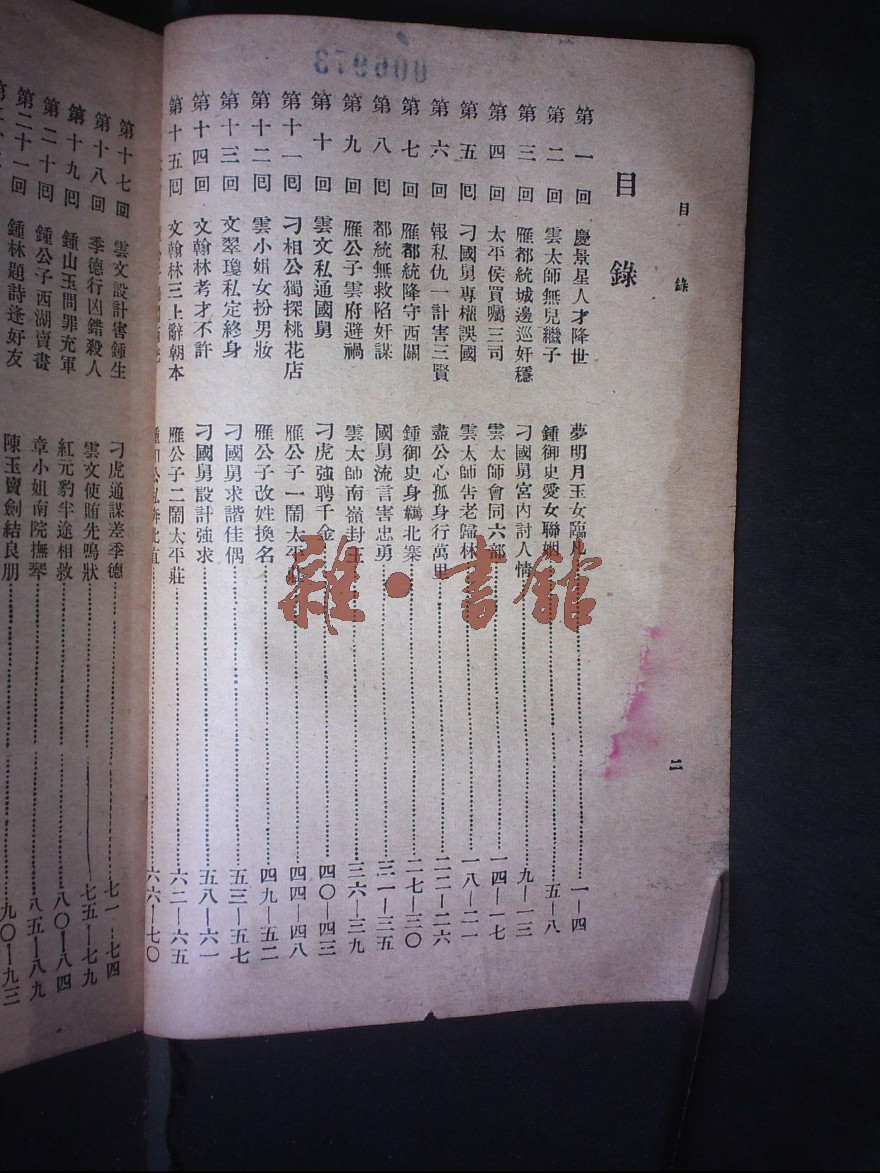 006973
目錄
二
目錄
第一回 慶景星人才降世 夢明月玉女臨凡 一—四
第二回 雲太師無兒繼子 鍾御史愛女聯姻 五—八
第三回 雁都統城邊巡奸穩 刁國舅宮內討人情 九—一三
第四回 太平侯買囑三司 雲太師會同六部 一四—一七
第五囘 刁國舅專權誤國 雲太師告老歸林 一八—二一
第六回 報私仇一計害三賢 盡公心孤身行萬里 二二—二六
第七回 雁都統降守西關 鍾御史身羈北寨 二七—三〇
第八囘 都統無救陷奸謀 國舅流言害忠勇 三一—三五
第九回 雁公子雲府避禍 雲太師南嶺封王 三六—三九
第十囘 雲文私通國舅 刁虎強聘千金 四〇—四三
第十一囘 刁相公獨探桃花店 雁公子一鬧太平莊 四四—四八
第十二回 雲小姐女扮男妝 雁公子改姓換名 四九—五二
第十三回 文翠瓊私定終身 刁國舅求諧佳偶 五三—五七
第十四回 文翰林考才不許 刁國舅設計強求 五八—六一
第十五囘 文翰林三上辭朝本 雁公子二鬧太平莊 六二—六五
六六—七〇
第十七回 雲文設計害鍾生 刁虎通謀差季德 七一—七四
第十八回 季德行凶錯殺人 雲文使賄先鳴狀 七五—七九
第十九囘 鍾山玉問罪充軍 紅元豹半途相救 八〇—八四
第二十囘 鍾公子西湖賣畫 章小姐南院撫琴 八五—八九
第二十一囘 鍾林題詩逢好友 陳玉賣劍結良朋 九〇—九三
雜·書館